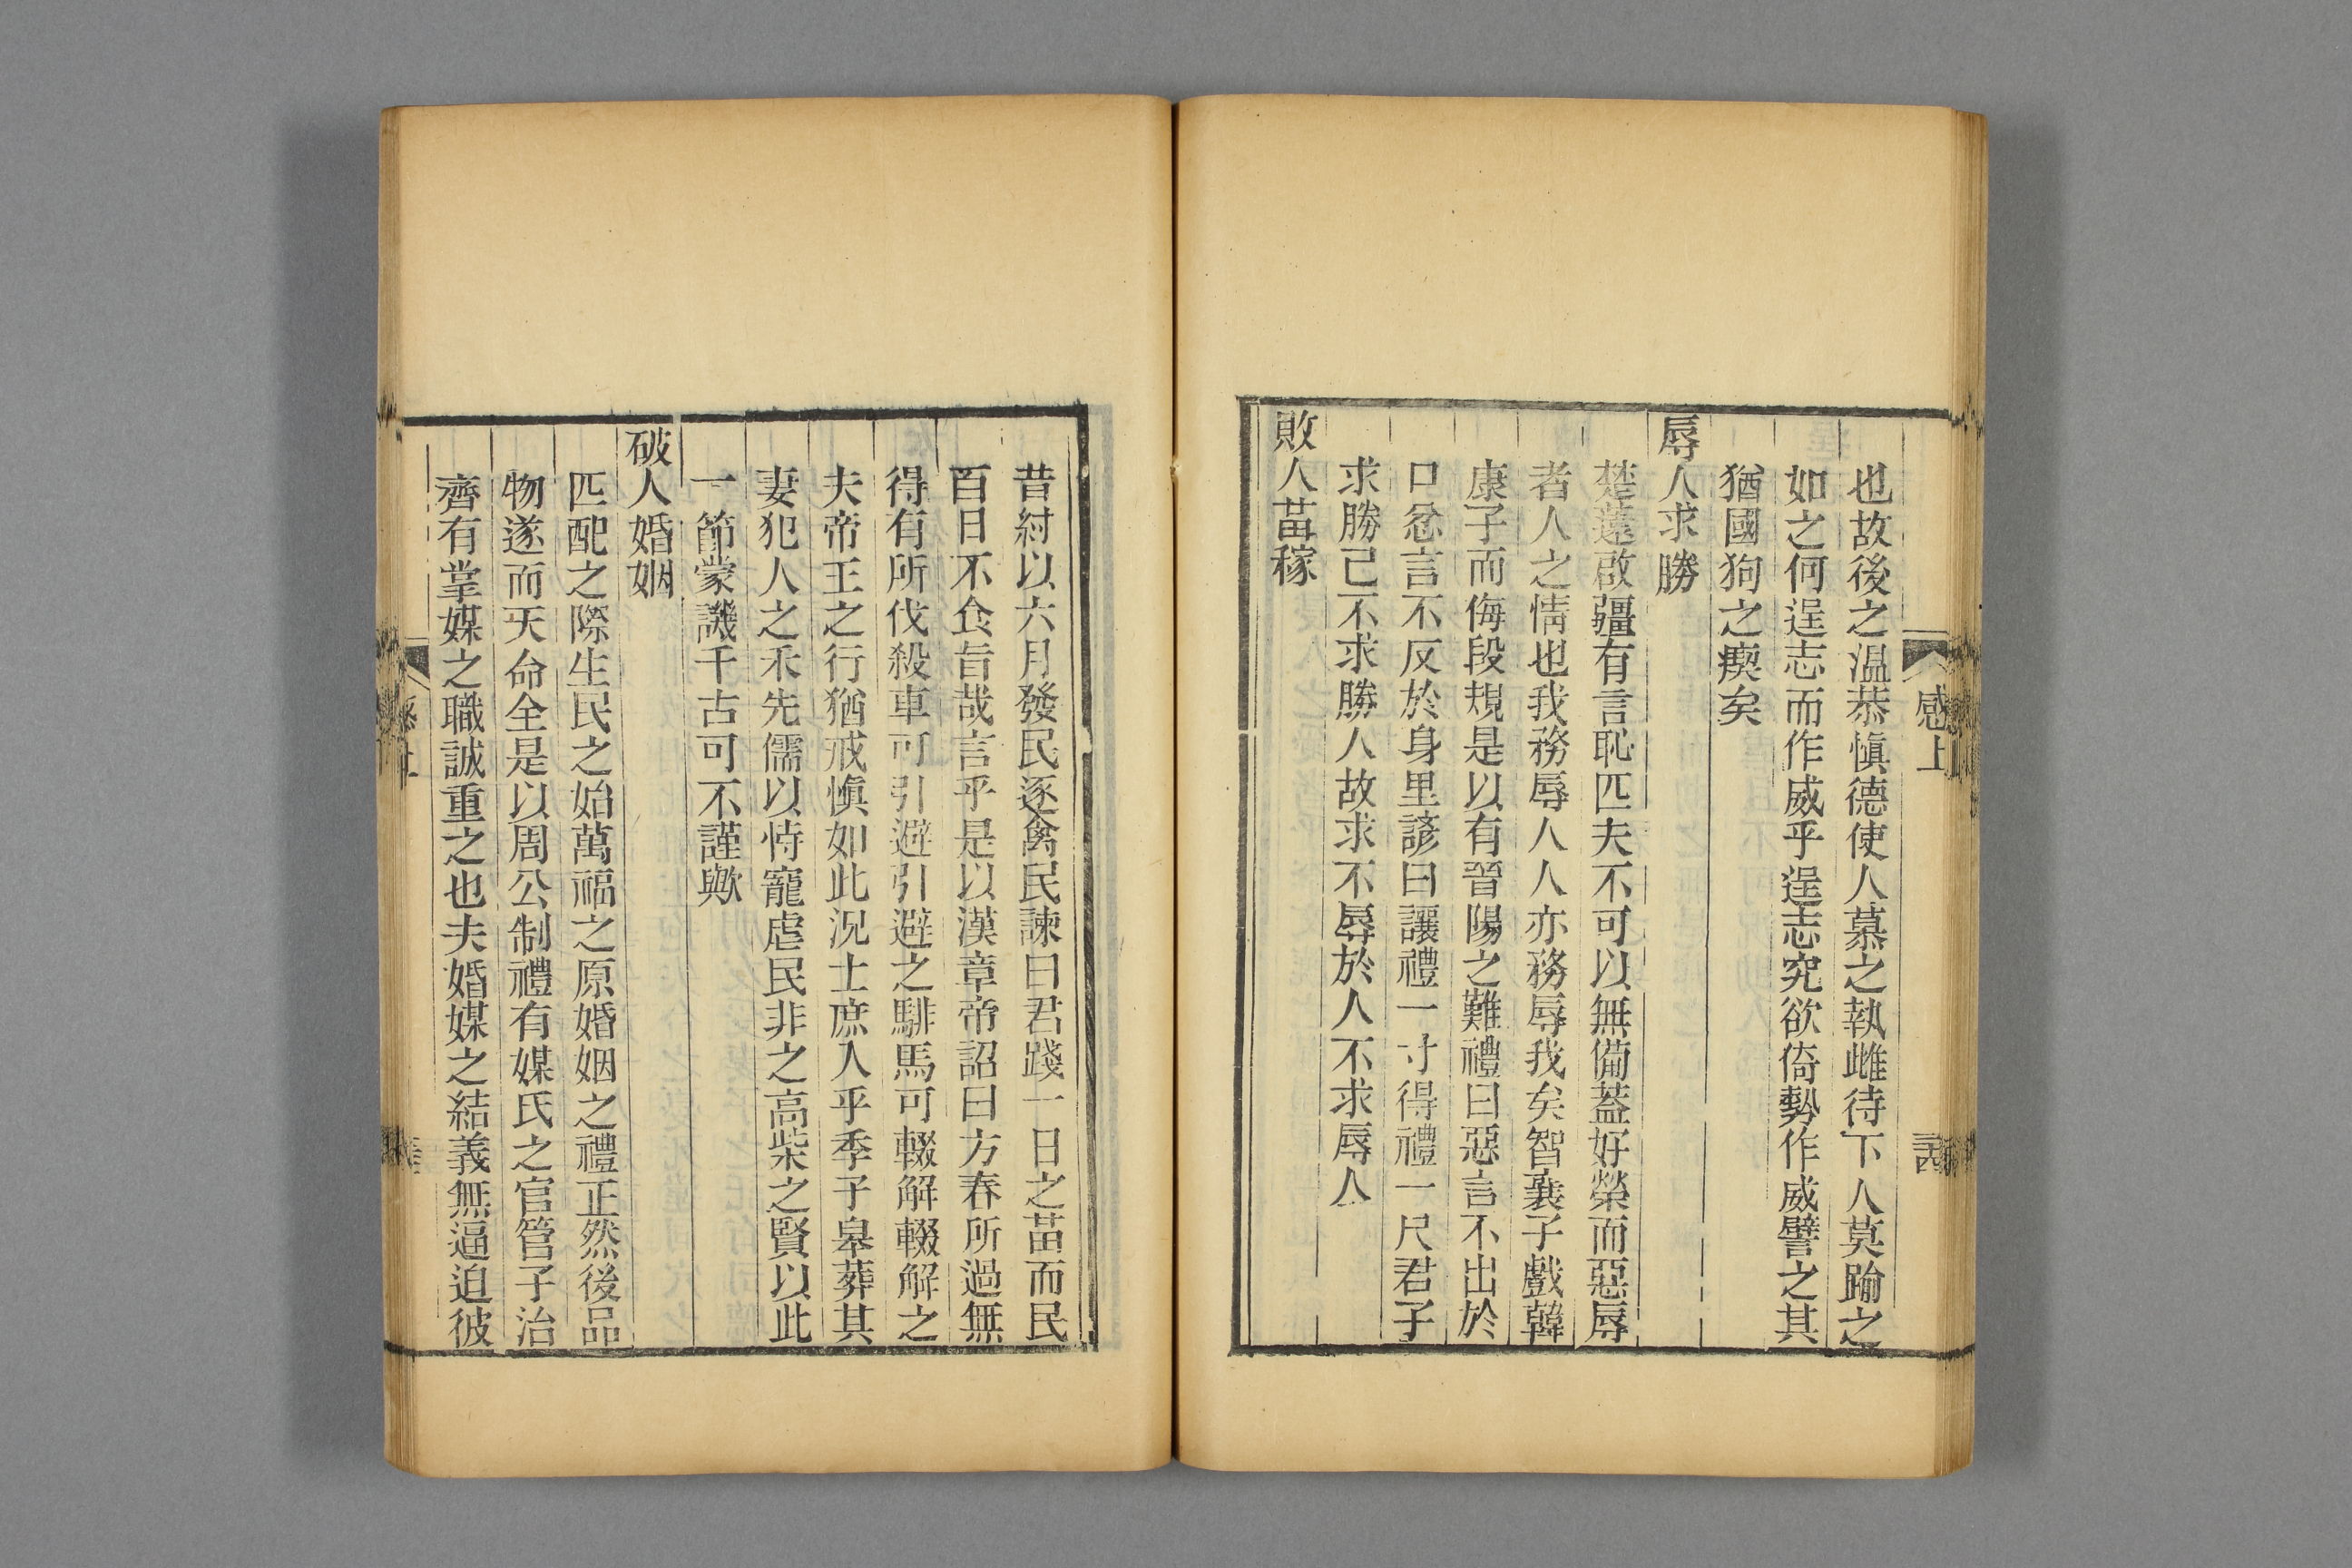 感上
也故後之溫恭愼德使人慕之執雌待下人莫踰之
如之何逞志而作威乎逞志究欲倚勢作威譬之其
猶國狗之瘈矣
辱人求勝
楚薳啟疆有言恥匹夫不可以無備蓋好榮而惡辱
者人之情也我務辱人人亦務辱我矣智襄子戲韓
康子而侮段規是以有晉陽之難禮曰惡言不出於
口忿言不反於身里諺曰讓禮一寸得禮一尺君子
求勝己不求勝人故求不辱於人不求辱人
敗人苗稼
昔紂以六月發民逐禽民諫曰君踐一日之苗而民
百日不食旨哉言乎是以漢章帝詔曰方春所過無
得有所伐殺車可引避引避之騑馬可輟解輟解之
夫帝王之行猶戒愼如此況士庶人乎季子皋葬其
妻犯人之禾先儒以恃寵虐民非之高柴之賢以此
一節蒙譏千古可不謹歟
破人婚姻
匹配之際生民之始萬福之原婚姻之禮正然後品
物遂而天命全是以周公制禮有媒氏之官管子治
齊有掌媒之職誠重之也夫婚媒之結義無逼迫彼